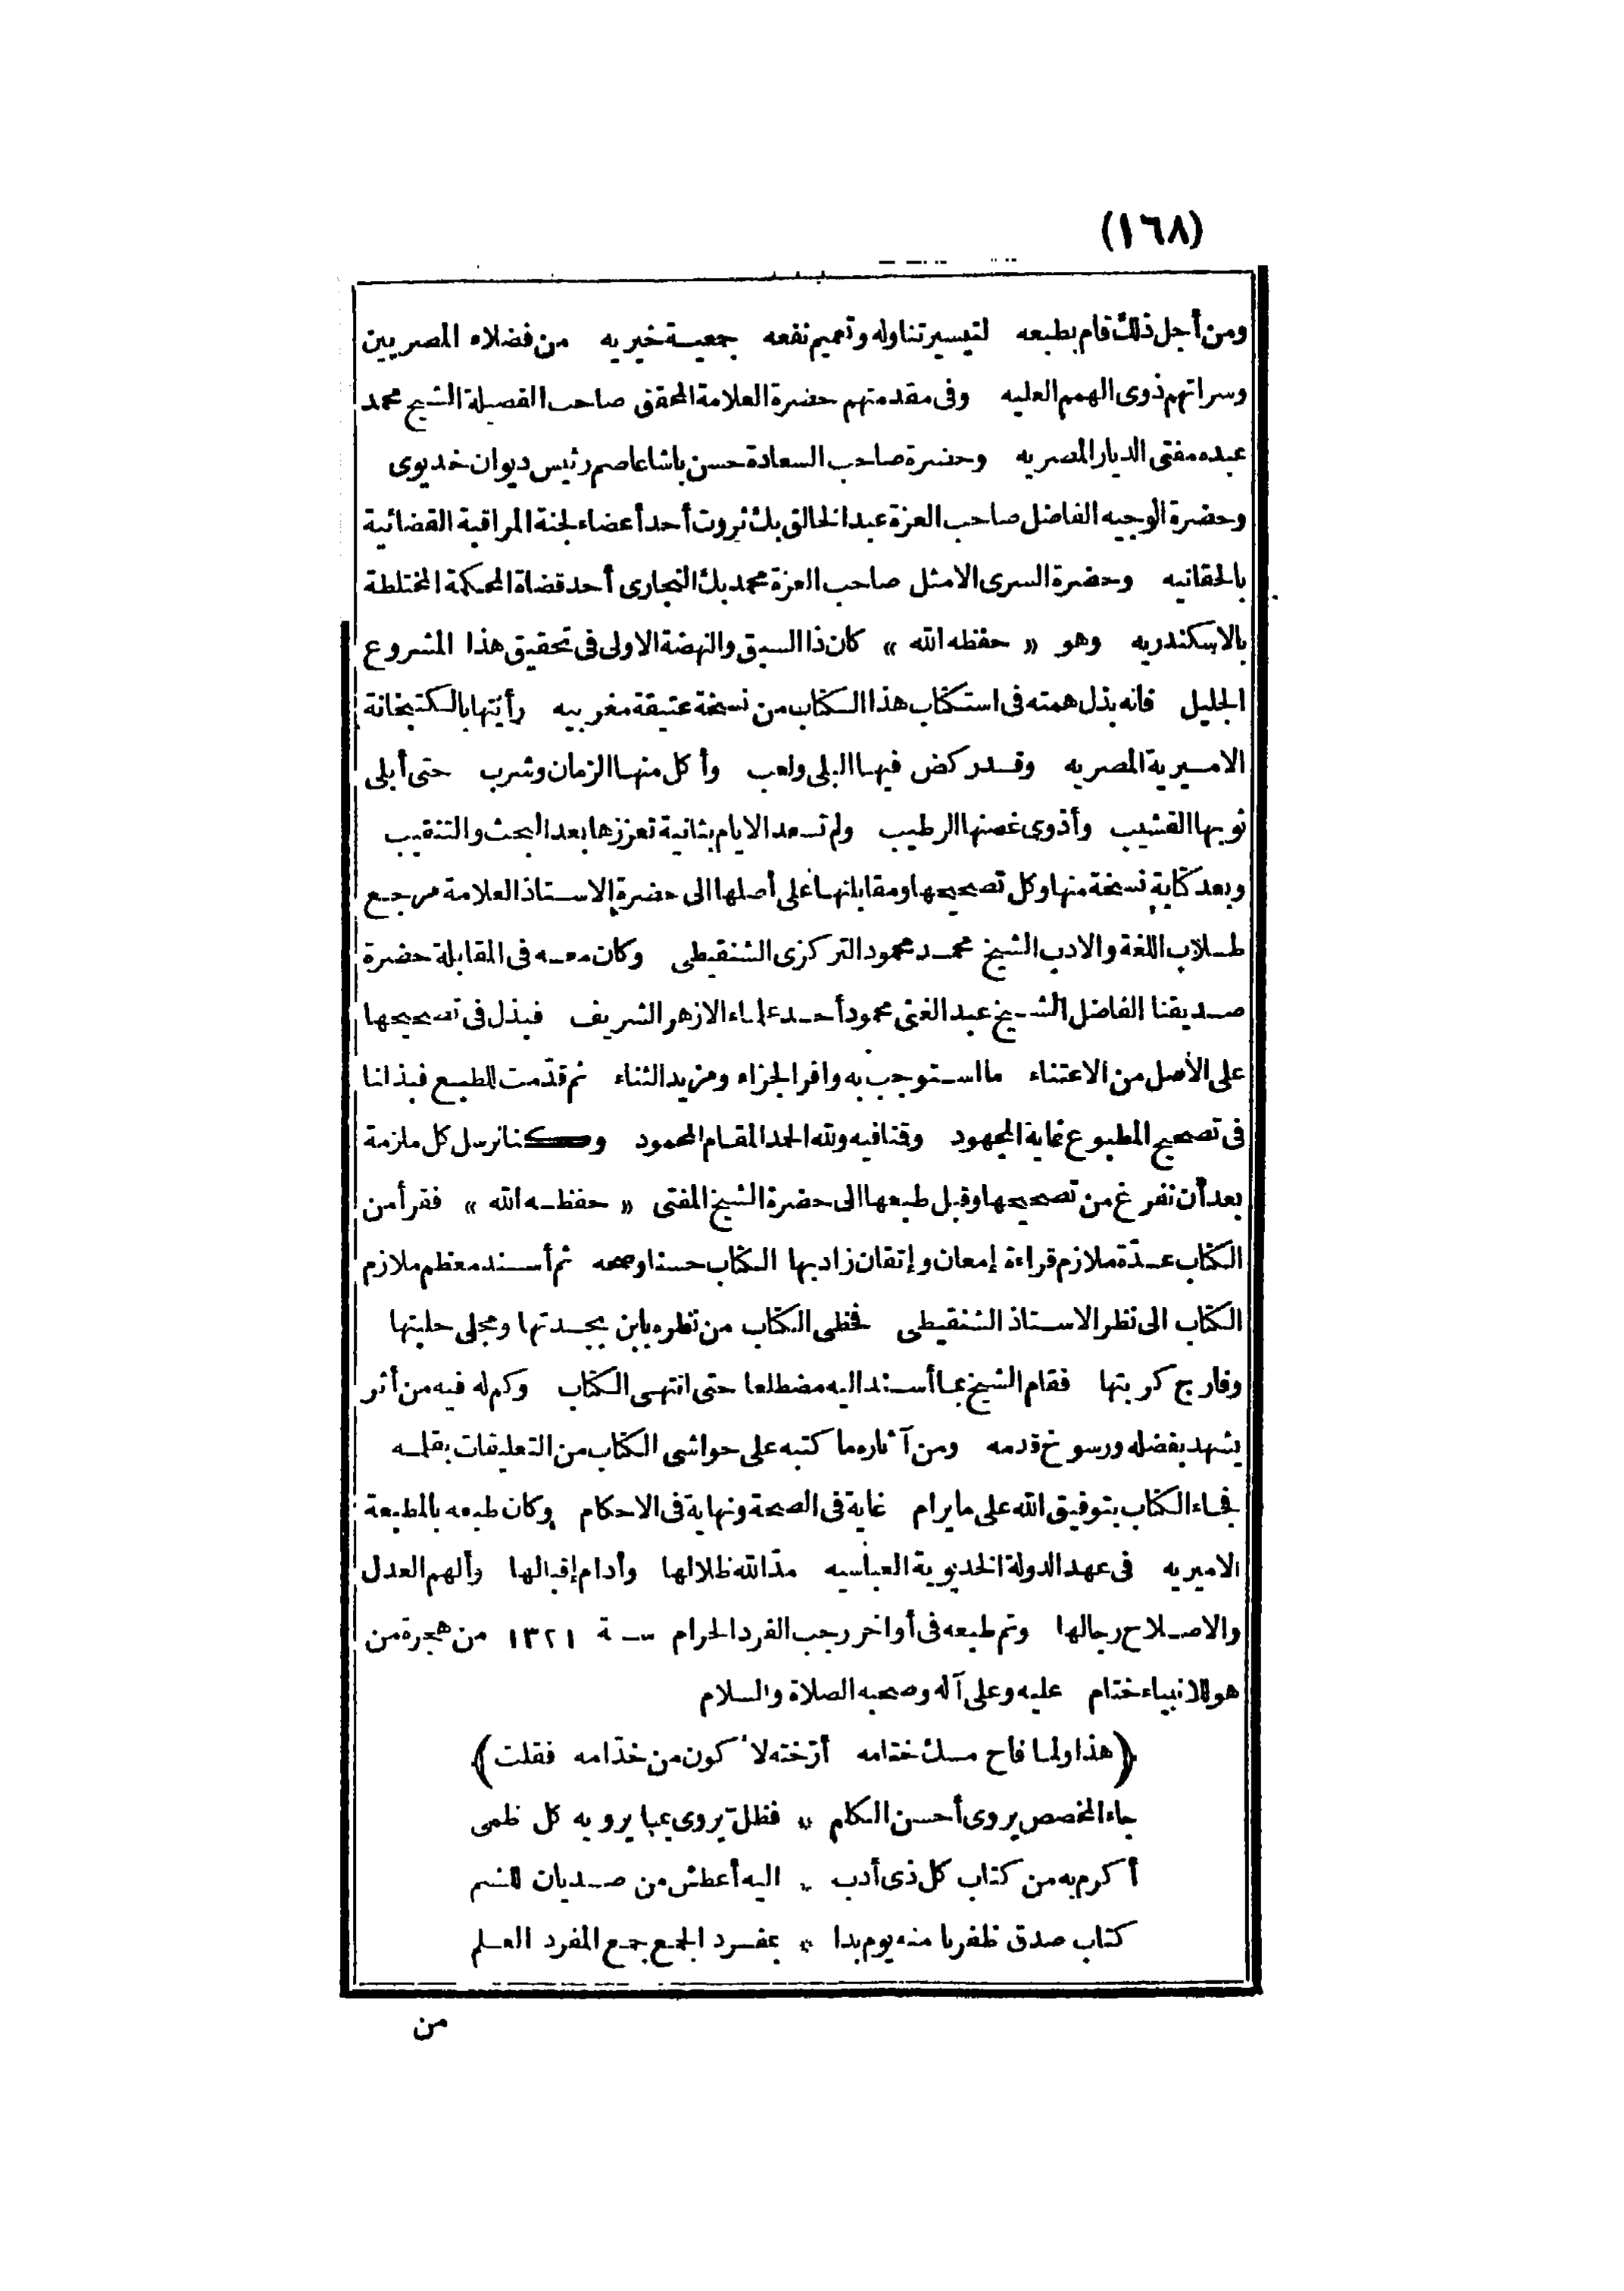 (١٦٨)
ومن أجل ذلك قام بطبعه لتيسير تناوله وتعميم نفعه جمعية خيريه من فضلاء المصريين
وسراتهم ذوى الهمم العليه وفى مقدمتهم حضرة العلامة المحقق صاحب الفضيلة الشيخ محمد
عبده مفتى الديار المصريه وحضرة صاحب السعادة حسن باشا عاصم رئيس ديوان خديوى
وحضرة الوجيه الفاضل صاحب العزة عبد الخالق بك ثروت أحد أعضاء لجنة المراقبة القضائية
بالحقانيه وحضرة السرى الامثل صاحب العزة محمد بك النجارى أحد قضاة المحكمة المختلطة
بالاسكندريه وهو « حفظه الله » كان ذا السبق والنهضة الاولى فى تحقيق هذا المشروع
الجليل فانه بذل همته فى استكتاب هذا الكتاب من نسخة عتيقة مغربيه رأيتها بالكتبخانة
الاميرية المصريه وقد ركض فيها البلى ولعب وأكل منها الزمان وشرب حتى أبلى
ثوبها القشيب وأذوى غصنها الرطيب ولم تسعد الايام بثانية تعززها بعد البحث والتنقيب
وبعد كتابة نسخة منها وكل تصحيحها ومقابلتها على أصلها الى حضرة الاستاذ العلامة مرجع
طلاب اللغة والادب الشيخ محمد محمود التركزى الشنقيطى وكان معه فى المقابلة حضرة
صديقنا الفاضل الشيخ عبد الغنى محمود أحد علماء الازهر الشريف فبذل فى تصحيحها
على الأصل من الاعتناء ما استوجب به وافر الجزاء ومزيد الثناء ثم قدّمت للطبع فبذلنا
فى تصحيح المطبوع غاية المجهود وقمنا فيه ولله الحمد المقام المحمود وكنا نرسل كل ملزمة
بعد أن نفرغ من تصحيحها وقبل طبعها الى حضرة الشيخ المفتى « حفظه الله » فقرأ من
الكتاب عدّة ملازم قراءة إمعان وإتقان زاد بها الكتاب حسنا وصحه ثم أسند معظم ملازم
الكتاب الى نظر الاستاذ الشنقيطى فحظى الكتاب من نظره بابن بجدتها ومجلى حلبتها
وفارج كربتها فقام الشيخ بما أسند اليه مضطلعا حتى انتهى الكتاب وكم له فيه من أثر
يشهد بفضله ورسوخ قدمه ومن آثاره ما كتبه على حواشى الكتاب من التعليقات بقلمه
فجاء الكتاب بتوفيق الله على ما يرام غاية فى الصحة ونهاية فى الاحكام وكان طبعه بالمطبعة
الاميريه فى عهد الدولة الخديوية العباسيه مدّ الله ظلالها وأدام إقبالها وألهم العدل
والاصلاح رجالها وتم طبعه فى أواخر رجب الفرد الحرام سنة ١٣٢١ من هجرة من
هو للانبياء ختام عليه وعلى آله وصحبه الصلاة والسلام
(هذا ولما فاح مسك ختامه أرّخته لأكون من خدّامه فقلت)
جاء المخصص يروى أحسن الكلم * فظلّ يروى بما يرويه كل ظمى
أكرم به من كتاب كل ذى أدب * اليه أعطش من صديان للنسم
كتاب صدق ظفرنا منه يوم بدا * بمفرد الجمع جمع المفرد العلم
من